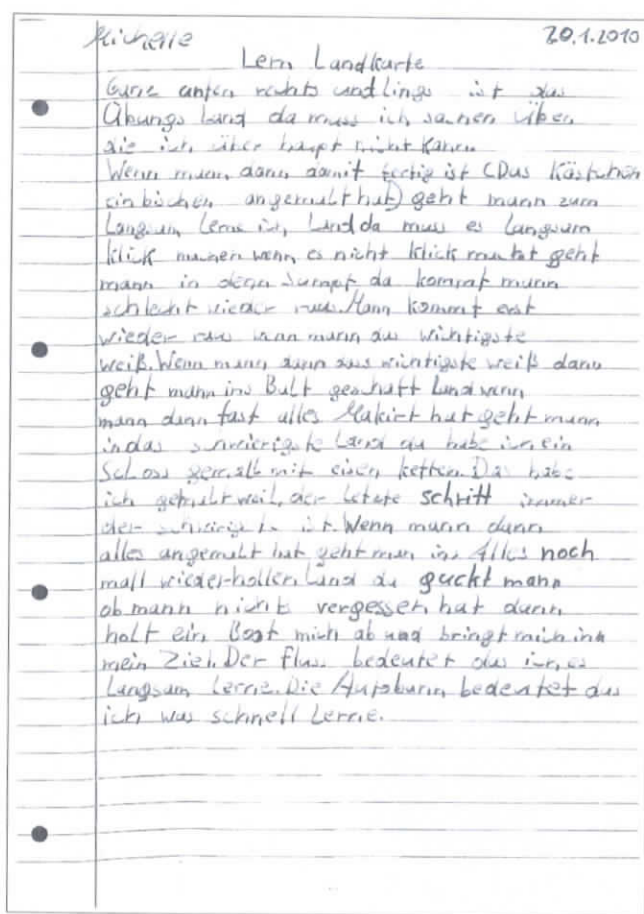 Michelle 20.1.2010
Lern Landkarte
Ganz unten rechts und lings ist das
Übungs Land da muss ich sachen Üben
die ich über haupt nicht kann
Wenn mann dann damit fertig ist (Das Kästchen
ein bischen angemalt hat) geht mann zum
Langsam Lerne ich Land da muss es Langsam
klick machen wenn es nicht klick macht geht
mann in denn Sumpf da kommt mann
schlecht wieder raus. Mann kommt erst
wieder raus wenn mann das wichtigste
weiß. Wenn mann dann das wichtigste weiß dann
geht mann ins Balt geschaft Land wenn
mann dann fast alles Makirt hat geht mann
in das schwierigste Land da habe ich ein
Schloss gemalt mit einen ketten. Das habe
ich gemalt weil der letzte schritt immer
der ist. Wenn mann dann
alles angemalt hat geht man ins Alles noch
mall wieder-hollen Land da guckt mann
ob mann nichts vergessen hat dann
holt ein Boot mich ab und bringt mich inn
mein Ziel. Der fluss bedeutet das ich es
Langsam Lerne. Die Autobahn bedeutet das
ich was schnell Lerne.